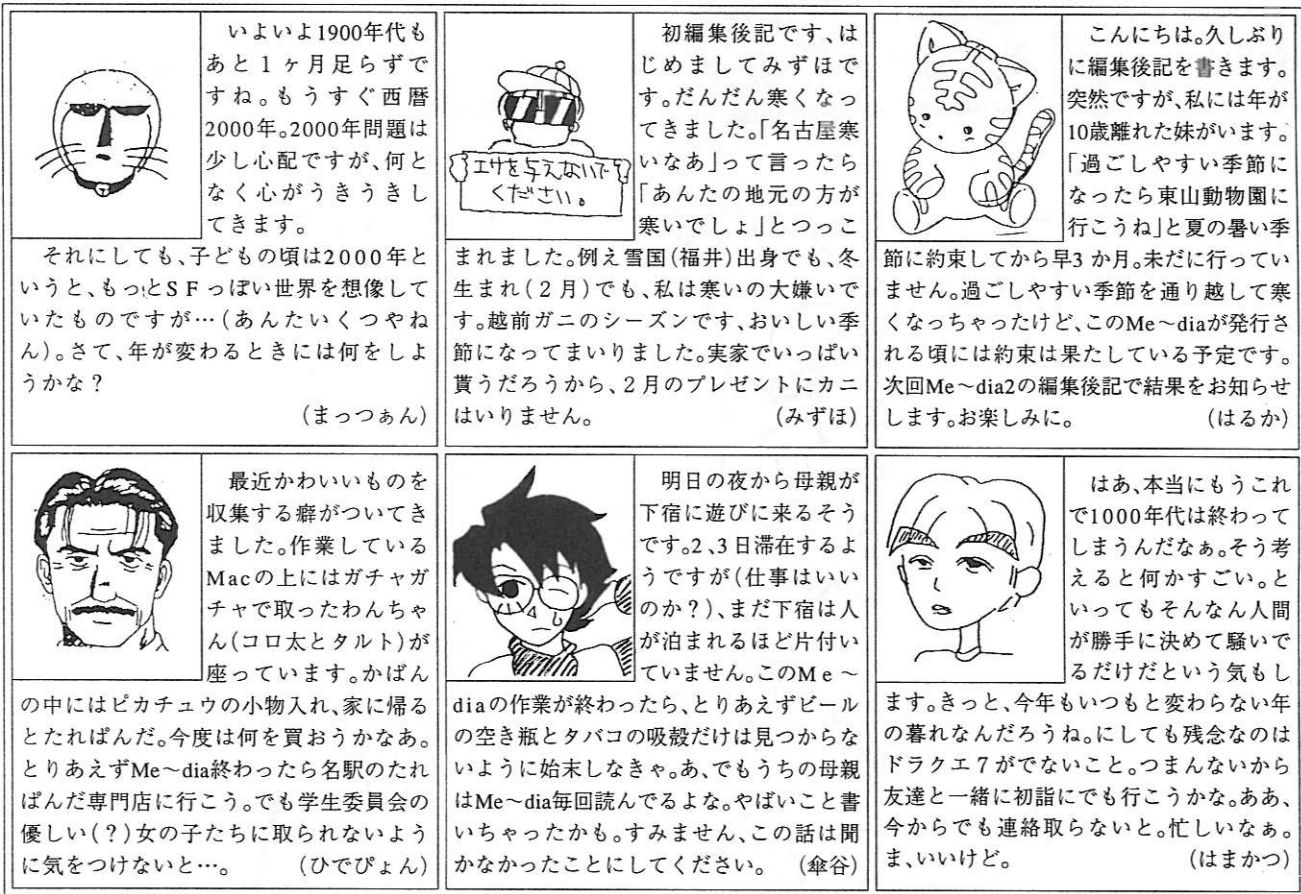 いよいよ1900年代も
あと1ヶ月足らずで
すね。もうすぐ西暦
2000年。2000年問題は
少し心配ですが、何と
なく心がうきうきし
てきます。
それにしても、子どもの頃は2000年と
いうと、もっとSFっぽい世界を想像して
いたものですが…(あんたいくつやね
ん)。さて、年が変わるときには何をしよ
うかな?
(まっつぁん)
エサを与えないで
ください。
初編集後記です、は
じめましてみずほで
す。だんだん寒くなっ
てきました。「名古屋寒
いなあ」って言ったら
「あんたの地元の方が
寒いでしょ」とつっこ
まれました。例え雪国(福井)出身でも、冬
生まれ(2月)でも、私は寒いの大嫌いで
す。越前ガニのシーズンです、おいしい季
節になってまいりました。実家でいっぱい
貰うだろうから、2月のプレゼントにカニ
はいりません。 (みずほ)
こんにちは。久しぶり
に編集後記を書きます。
突然ですが、私には年が
10歳離れた妹がいます。
「過ごしやすい季節に
なったら東山動物園に
行こうね」と夏の暑い季
節に約束してから早3か月。未だに行ってい
ません。過ごしやすい季節を通り越して寒
くなっちゃったけど、このMe～diaが発行さ
れる頃には約束は果たしている予定です。
次回Me～dia2の編集後記で結果をお知らせ
します。お楽しみに。 (はるか)
最近かわいいものを
収集する癖がついてき
ました。作業している
Macの上にはガチャガ
チャで取ったわんちゃ
ん(コロ太とタルト)が
座っています。かばん
の中にはピカチュウの小物入れ、家に帰る
とたれぱんだ。今度は何を買おうかなあ。
とりあえずMe～dia終わったら名駅のたれ
ぱんだ専門店に行こう。でも学生委員会の
優しい(?)女の子たちに取られないよう
に気をつけないと…。 (ひでぴょん)
明日の夜から母親が
下宿に遊びに来るそう
です。2、3日滞在するよ
うですが(仕事はいい
のか?)、まだ下宿は人
が泊まれるほど片付い
ていません。このMe～
diaの作業が終わったら、とりあえずビール
の空き瓶とタバコの吸殻だけは見つからな
いように始末しなきゃ。あ、でもうちの母親
はMe～dia毎回読んでるよな。やばいこと書
いちゃったかも。すみません、この話は聞
かなかったことにしてください。 (傘谷)
はあ、本当にもうこれ
で1000年代は終わって
しまうんだなぁ。そう考
えると何かすごい。と
いってもそんなん人間
が勝手に決めて騒いで
るだけだという気もし
ます。きっと、今年もいつもと変わらない年
の暮れなんだろうね。にしても残念なのは
ドラクエ7がでないこと。つまんないから
友達と一緒に初詣にでも行こうかな。ああ、
今からでも連絡取らないと。忙しいなぁ。
ま、いいけど。 (はまかつ)